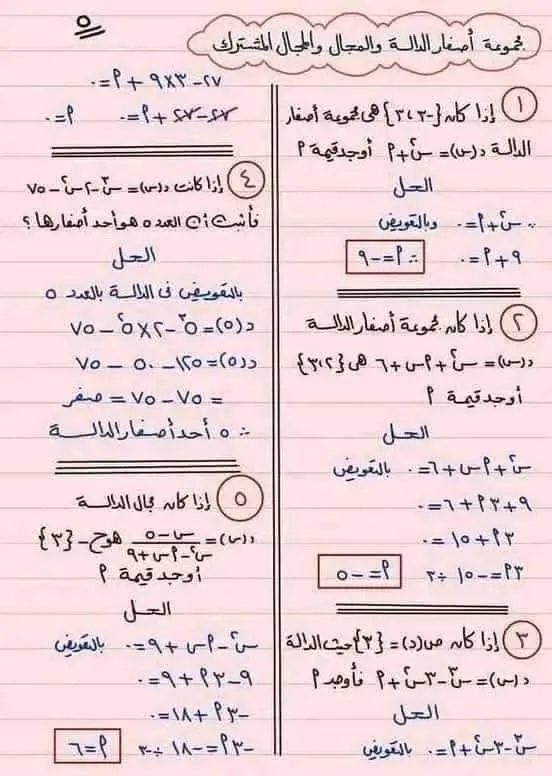 ٥
مجموعة أصفار الدالة والمجال والمجال المشترك
١ إذا كان {-٣،٣} هى مجموعة أصفار
الدالة د(س) = س² + م أوجد قيمة م
الحل
∵ س² + م = ٠ وبالتعويض
٩ + م = ٠ ∴ م = -٩
٢ إذا كان مجموعة أصفار الدالة
د(س) = س² + م س + ٦ هى {٣،٢}
أوجد قيمة م
الحل
س² + م س + ٦ = ٠ بالتعويض
٩ + ٣م + ٦ = ٠
٣م + ١٥ = ٠
٣م = -١٥ ÷ ٣ م = -٥
٣ إذا كان ص(د) = {٣} حيث الدالة
د(س) = س³ - ٣س² + م فأوجد م
الحل
س³ - ٣س² + م = ٠ بالتعويض
٢٧ - ٣×٩ + م = ٠
٢٧ - ٢٧ + م = ٠ م = ٠
٤ إذا كانت د(س) = س³ - ٢س² - ٧٥
فأثبت أن العدد ٥ هو أحد أصفارها ؟
الحل
بالتعويض فى الدالة بالعدد ٥
د(٥) = ٥³ - ٢×٥² - ٧٥
د(٥) = ١٢٥ - ٥٠ - ٧٥
= ٧٥ - ٧٥ = صفر
∴ ٥ أحد أصفار الدالة
٥ إذا كان مجال الدالة
د(س) = (س - ٥)/(س² - م س + ٩) هو ح - {٣}
أوجد قيمة م
الحل
س² - م س + ٩ = ٠ بالتعويض
٩ - ٣م + ٩ = ٠
-٣م + ١٨ = ٠
-٣م = -١٨ ÷ -٣ م = ٦